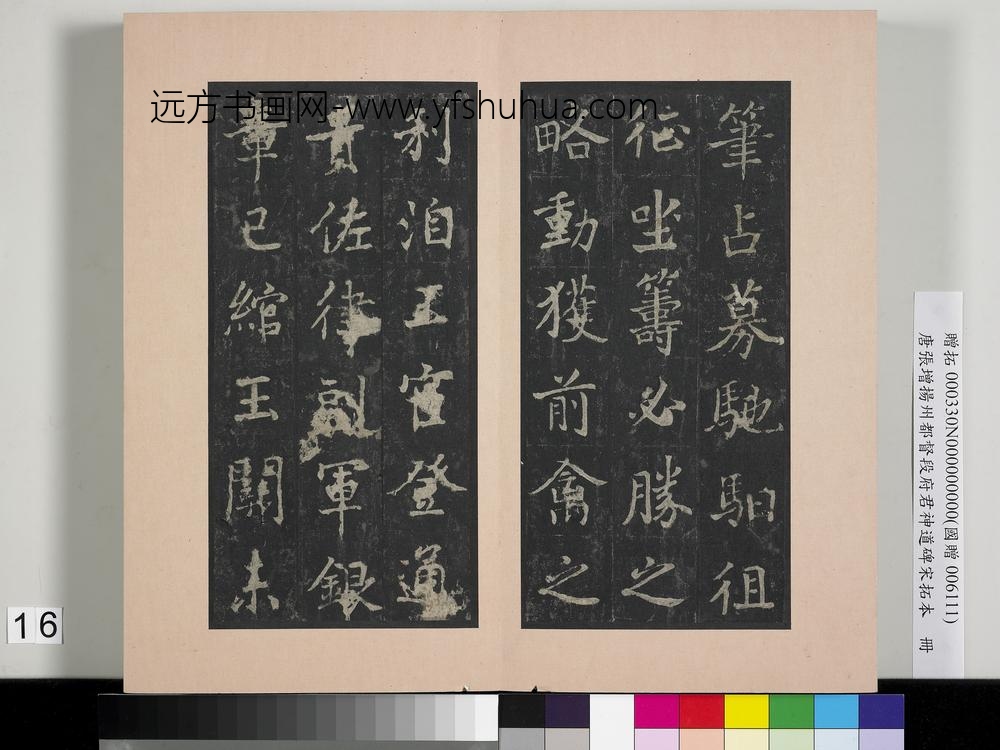 远方书画网-www.yfshuhua.com
筆占募馳馹徂
征坐籌必勝之
略動獲前禽之
利洎王官登通
貴佐律副軍銀
章已綰玉關未
贈拓 000330N000000000(國贈 006111)
唐張增揚州都督段府君神道碑宋拓本 冊
16